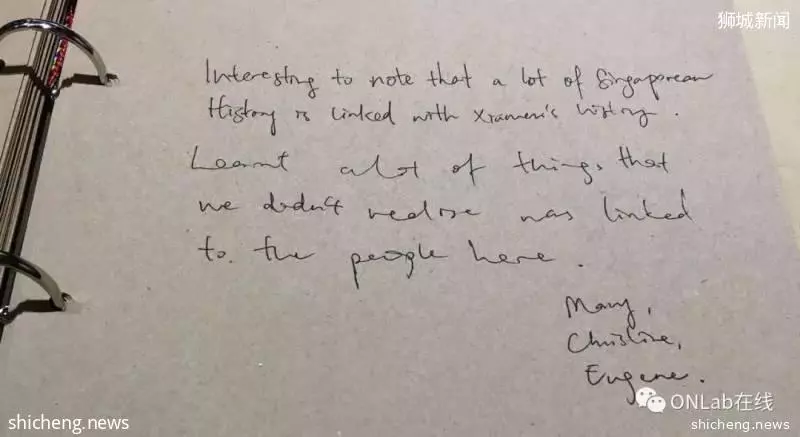 狮城新闻
Interesting to note that a lot of Singaporean
History is linked with Xiamen's history.
Learnt a lot of things that
we didn't realise was linked
to the people here.
Mary,
Christine,
Eugene.
ONLab在线
shicheng.news
shicheng.news